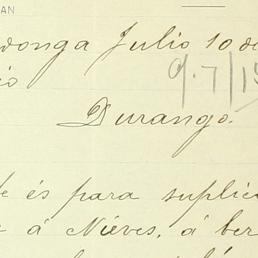 AN
donga Julio 10 de
io
9.7/19
Durango.
e és para suplica
e á Niéves, á ber